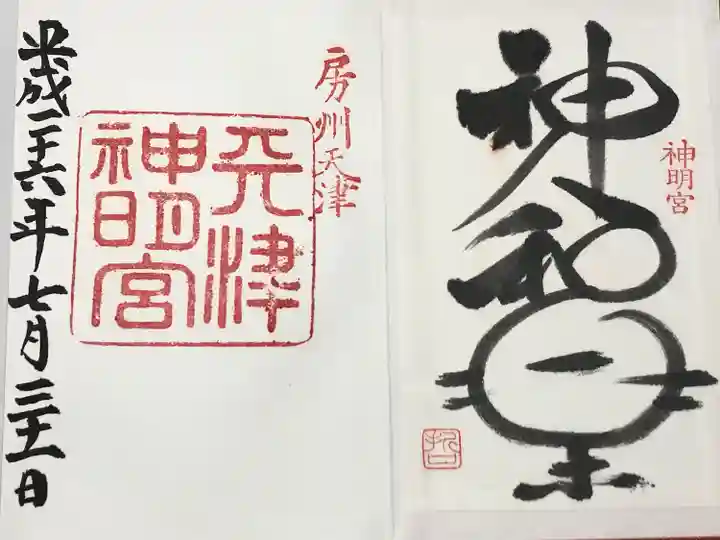 神明宮
神和楽
房州天津
天津
神明宮
平成二十六年七月三十一日